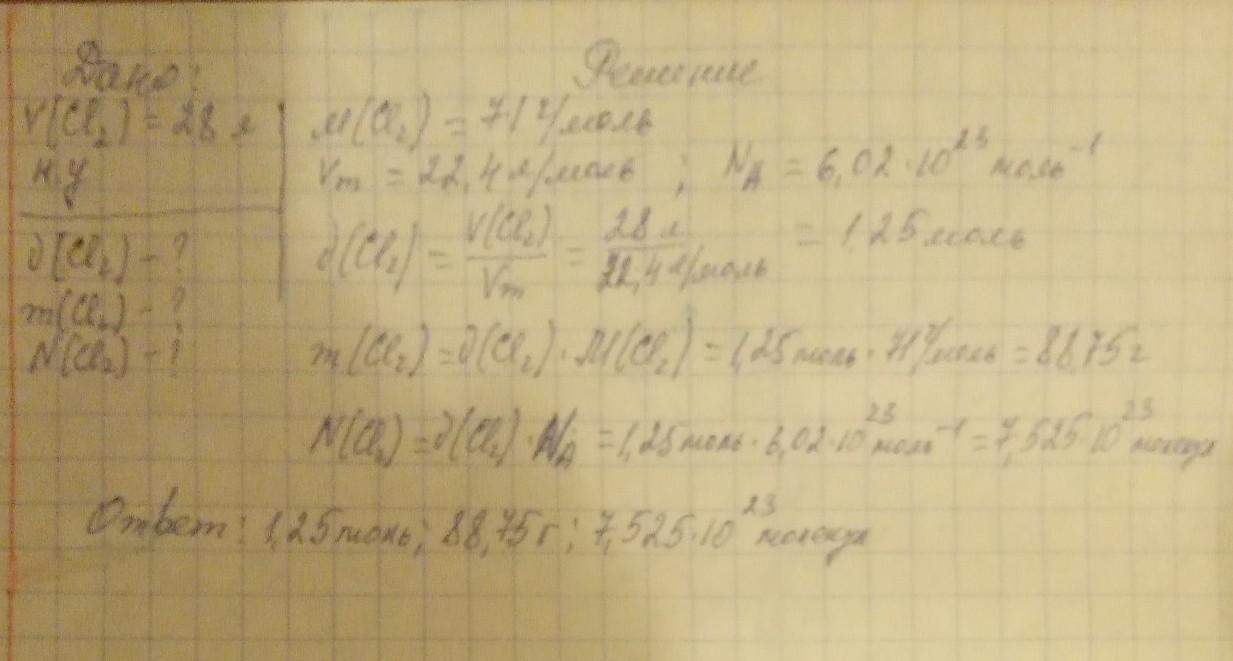 Дано:
V(Cl₂) = 28 л
н.у
∂(Cl₂) - ?
m(Cl₂) - ?
N(Cl₂) - ?
Решение
M(Cl₂) = 71 г/моль
Vm = 22,4 л/моль ; N_A = 6,02·10²³ моль⁻¹
∂(Cl₂) = V(Cl₂)/Vm = 28 л/22,4 л/моль = 1,25 моль
m(Cl₂) = ∂(Cl₂) · M(Cl₂) = 1,25 моль · 71 г/моль = 88,75 г
N(Cl₂) = ∂(Cl₂) · N_A = 1,25 моль · 6,02·10²³ моль⁻¹ = 7,525·10²³ молекул
Ответ: 1,25 моль; 88,75 г; 7,525·10²³ молекул